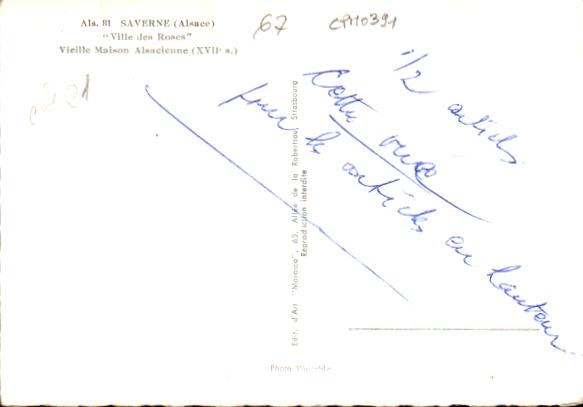 Als. 81 SAVERNE (Alsace)
"Ville des Roses"
Vieille Maison Alsacienne (XVIIe s.)
67
CPM0391
21
1/2 articles
Cette vue
pour les articles en hauteur
Edit. d'Art "Marasco", 65, Allée de la Robertsau, Strasbourg
Reproduction interdite
Photo Véritable